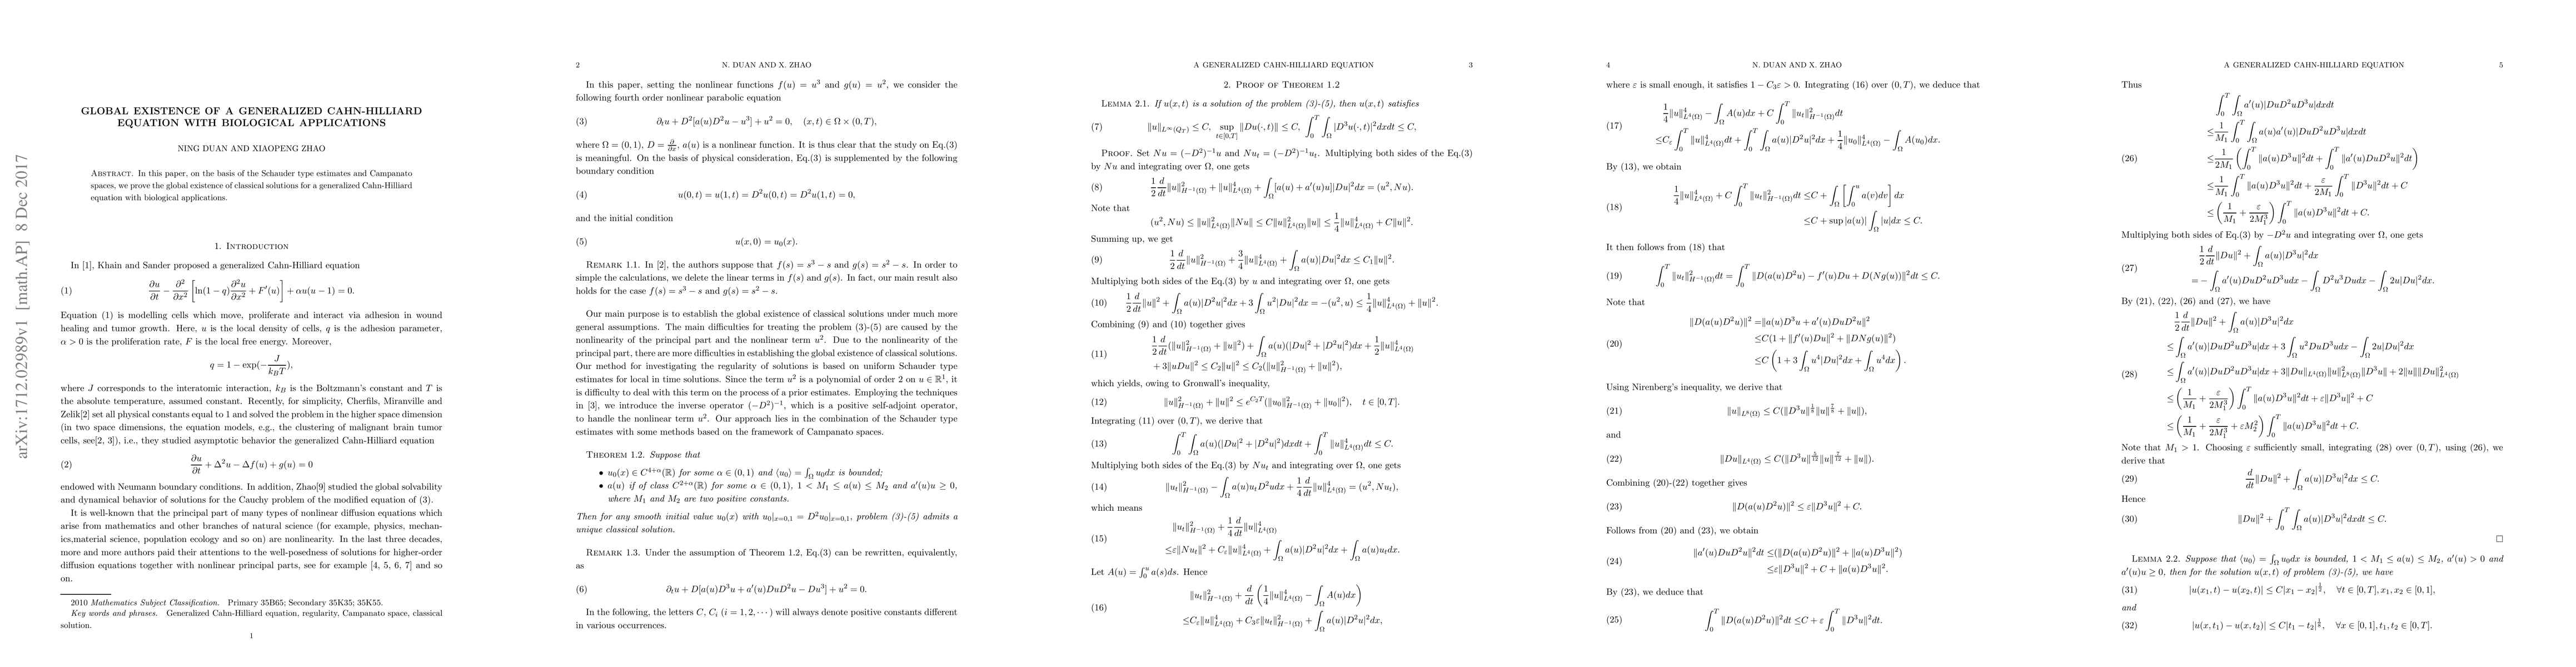 arXiv:1712.02989v1 [math.AP] 8 Dec 2017
GLOBAL EXISTENCE OF A GENERALIZED CAHN-HILLIARD
EQUATION WITH BIOLOGICAL APPLICATIONS
NING DUAN AND XIAOPENG ZHAO
ABSTRACT. In this paper, on the basis of the Schauder type estimates and Campanato
spaces, we prove the global existence of classical solutions for a generalized Cahn-Hilliard
equation with biological applications.
1. INTRODUCTION
In [1], Khain and Sander proposed a generalized Cahn-Hilliard equation
(1) ∂u/∂t − ∂²/∂x² [ln(1 − q) ∂²u/∂x² + F′(u)] + αu(u − 1) = 0.
Equation (1) is modelling cells which move, proliferate and interact via adhesion in wound
healing and tumor growth. Here, u is the local density of cells, q is the adhesion parameter,
α > 0 is the proliferation rate, F is the local free energy. Moreover,
q = 1 − exp(−J/(k_B T)),
where J corresponds to the interatomic interaction, k_B is the Boltzmann's constant and T is
the absolute temperature, assumed constant. Recently, for simplicity, Cherfils, Miranville and
Zelik[2] set all physical constants equal to 1 and solved the problem in the higher space dimension
(in two space dimensions, the equation models, e.g., the clustering of malignant brain tumor
cells, see[2, 3]), i.e., they studied asymptotic behavior the generalized Cahn-Hilliard equation
(2) ∂u/∂t + Δ²u − Δf(u) + g(u) = 0
endowed with Neumann boundary conditions. In addition, Zhao[9] studied the global solvability
and dynamical behavior of solutions for the Cauchy problem of the modified equation of (3).
It is well-known that the principal part of many types of nonlinear diffusion equations which
arise from mathematics and other branches of natural science (for example, physics, mechan-
ics,material science, population ecology and so on) are nonlinearity. In the last three decades,
more and more authors paid their attentions to the well-posedness of solutions for higher-order
diffusion equations together with nonlinear principal parts, see for example [4, 5, 6, 7] and so
on.
2010 Mathematics Subject Classification. Primary 35B65; Secondary 35K35; 35K55.
Key words and phrases. Generalized Cahn-Hilliard equation, regularity, Campanato space, classical
solution.
1
2 N. DUAN AND X. ZHAO
In this paper, setting the nonlinear functions f(u) = u³ and g(u) = u², we consider the
following fourth order nonlinear parabolic equation
(3) ∂_t u + D²[a(u)D²u − u³] + u² = 0, (x, t) ∈ Ω × (0, T),
where Ω = (0, 1), D = ∂/∂x, a(u) is a nonlinear function. It is thus clear that the study on Eq.(3)
is meaningful. On the basis of physical consideration, Eq.(3) is supplemented by the following
boundary condition
(4) u(0, t) = u(1, t) = D²u(0, t) = D²u(1, t) = 0,
and the initial condition
(5) u(x, 0) = u₀(x).
REMARK 1.1. In [2], the authors suppose that f(s) = s³ − s and g(s) = s² − s. In order to
simple the calculations, we delete the linear terms in f(s) and g(s). In fact, our main result also
holds for the case f(s) = s³ − s and g(s) = s² − s.
Our main purpose is to establish the global existence of classical solutions under much more
general assumptions. The main difficulties for treating the problem (3)-(5) are caused by the
nonlinearity of the principal part and the nonlinear term u². Due to the nonlinearity of the
principal part, there are more difficulties in establishing the global existence of classical solutions.
Our method for investigating the regularity of solutions is based on uniform Schauder type
estimates for local in time solutions. Since the term u² is a polynomial of order 2 on u ∈ ℝ¹, it
is difficulty to deal with this term on the process of a prior estimates. Employing the techniques
in [3], we introduce the inverse operator (−D²)⁻¹, which is a positive self-adjoint operator,
to handle the nonlinear term u². Our approach lies in the combination of the Schauder type
estimates with some methods based on the framework of Campanato spaces.
THEOREM 1.2. Suppose that
• u₀(x) ∈ C^{4+α}(ℝ) for some α ∈ (0, 1) and ⟨u₀⟩ = ∫_Ω u₀dx is bounded;
• a(u) if of class C^{2+α}(ℝ) for some α ∈ (0, 1), 1 < M₁ ≤ a(u) ≤ M₂ and a′(u)u ≥ 0,
where M₁ and M₂ are two positive constants.
Then for any smooth initial value u₀(x) with u₀|_{x=0,1} = D²u₀|_{x=0,1}, problem (3)-(5) admits a
unique classical solution.
REMARK 1.3. Under the assumption of Theorem 1.2, Eq.(3) can be rewritten, equivalently,
as
(6) ∂_t u + D[a(u)D³u + a′(u)DuD²u − Du³] + u² = 0.
In the following, the letters C, C_i (i = 1, 2, · · · ) will always denote positive constants different
in various occurrences.
A GENERALIZED CAHN-HILLIARD EQUATION 3
2. PROOF OF THEOREM 1.2
LEMMA 2.1. If u(x, t) is a solution of the problem (3)-(5), then u(x, t) satisfies
(7) ‖u‖_{L^∞(Q_T)} ≤ C, sup_{t∈[0,T]} ‖Du(·, t)‖ ≤ C, ∫_0^T ∫_Ω |D³u(·, t)|²dxdt ≤ C,
PROOF. Set Nu = (−D²)⁻¹u and Nu_t = (−D²)⁻¹u_t. Multiplying both sides of the Eq.(3)
by Nu and integrating over Ω, one gets
(8) 1/2 d/dt ‖u‖²_{H⁻¹(Ω)} + ‖u‖⁴_{L⁴(Ω)} + ∫_Ω [a(u) + a′(u)u]|Du|²dx = (u², Nu).
Note that
(u², Nu) ≤ ‖u‖²_{L⁴(Ω)}‖Nu‖ ≤ C‖u‖²_{L⁴(Ω)}‖u‖ ≤ 1/4 ‖u‖⁴_{L⁴(Ω)} + C‖u‖².
Summing up, we get
(9) 1/2 d/dt ‖u‖²_{H⁻¹(Ω)} + 3/4 ‖u‖⁴_{L⁴(Ω)} + ∫_Ω a(u)|Du|²dx ≤ C₁‖u‖².
Multiplying both sides of the Eq.(3) by u and integrating over Ω, one gets
(10) 1/2 d/dt ‖u‖² + ∫_Ω a(u)|D²u|²dx + 3∫_Ω u²|Du|²dx = −(u², u) ≤ 1/4 ‖u‖⁴_{L⁴(Ω)} + ‖u‖².
Combining (9) and (10) together gives
(11) 1/2 d/dt (‖u‖²_{H⁻¹(Ω)} + ‖u‖²) + ∫_Ω a(u)(|Du|² + |D²u|²)dx + 1/2 ‖u‖⁴_{L⁴(Ω)}
+ 3‖uDu‖² ≤ C₂‖u‖² ≤ C₂(‖u‖²_{H⁻¹(Ω)} + ‖u‖²),
which yields, owing to Gronwall's inequality,
(12) ‖u‖²_{H⁻¹(Ω)} + ‖u‖² ≤ e^{C₂T}(‖u₀‖²_{H⁻¹(Ω)} + ‖u₀‖²), t ∈ [0, T].
Integrating (11) over (0, T), we derive that
(13) ∫_0^T ∫_Ω a(u)(|Du|² + |D²u|²)dxdt + ∫_0^T ‖u‖⁴_{L⁴(Ω)}dt ≤ C.
Multiplying both sides of the Eq.(3) by Nu_t and integrating over Ω, one gets
(14) ‖u_t‖²_{H⁻¹(Ω)} − ∫_Ω a(u)u_tD²udx + 1/4 d/dt ‖u‖⁴_{L⁴(Ω)} = (u², Nu_t),
which means
(15) ‖u_t‖²_{H⁻¹(Ω)} + 1/4 d/dt ‖u‖⁴_{L⁴(Ω)}
≤ε‖Nu_t‖² + C_ε‖u‖⁴_{L⁴(Ω)} + ∫_Ω a(u)|D²u|²dx + ∫_Ω a(u)u_tdx.
Let A(u) = ∫_0^u a(s)ds. Hence
(16) ‖u_t‖²_{H⁻¹(Ω)} + d/dt (1/4 ‖u‖⁴_{L⁴(Ω)} − ∫_Ω A(u)dx)
≤C_ε‖u‖⁴_{L⁴(Ω)} + C₃ε‖u_t‖²_{H⁻¹(Ω)} + ∫_Ω a(u)|D²u|²dx,
4 N. DUAN AND X. ZHAO
where ε is small enough, it satisfies 1 − C₃ε > 0. Integrating (16) over (0, T), we deduce that
(17) 1/4 ‖u‖⁴_{L⁴(Ω)} − ∫_Ω A(u)dx + C∫_0^T ‖u_t‖²_{H⁻¹(Ω)}dt
≤C_ε ∫_0^T ‖u‖⁴_{L⁴(Ω)}dt + ∫_0^T ∫_Ω a(u)|D²u|²dx + 1/4 ‖u₀‖⁴_{L⁴(Ω)} − ∫_Ω A(u₀)dx.
By (13), we obtain
(18) 1/4 ‖u‖⁴_{L⁴(Ω)} + C∫_0^T ‖u_t‖²_{H⁻¹(Ω)}dt ≤C + ∫_Ω [∫_0^u a(v)dv] dx
≤C + sup |a(u)| ∫_Ω |u|dx ≤ C.
It then follows from (18) that
(19) ∫_0^T ‖u_t‖²_{H⁻¹(Ω)}dt = ∫_0^T ‖D(a(u)D²u) − f′(u)Du + D(Ng(u))‖²dt ≤ C.
Note that
(20) ‖D(a(u)D²u)‖² =‖a(u)D³u + a′(u)DuD²u‖²
≤C(1 + ‖f′(u)Du‖² + ‖DNg(u)‖²)
≤C (1 + 3∫_Ω u⁴|Du|²dx + ∫_Ω u⁴dx).
Using Nirenberg's inequality, we derive that
(21) ‖u‖_{L⁸(Ω)} ≤ C(‖D³u‖^{1/8}‖u‖^{7/8} + ‖u‖),
and
(22) ‖Du‖_{L⁴(Ω)} ≤ C(‖D³u‖^{5/12}‖u‖^{7/12} + ‖u‖).
Combining (20)-(22) together gives
(23) ‖D(a(u)D²u)‖² ≤ ε‖D³u‖² + C.
Follows from (20) and (23), we obtain
(24) ‖a′(u)DuD²u‖²dt ≤(‖D(a(u)D²u)‖² + ‖a(u)D³u‖²)
≤ε‖D³u‖² + C + ‖a(u)D³u‖².
By (23), we deduce that
(25) ∫_0^T ‖D(a(u)D²u)‖²dt ≤C + ε∫_0^T ‖D³u‖²dt.
A GENERALIZED CAHN-HILLIARD EQUATION 5
Thus
∫_0^T ∫_Ω a′(u)|DuD²uD³u|dxdt
≤ 1/M₁ ∫_0^T ∫_Ω a(u)a′(u)|DuD²uD³u|dxdt
(26) ≤ 1/(2M₁) (∫_0^T ‖a(u)D³u‖²dt + ∫_0^T ‖a′(u)DuD²u‖²dt)
≤ 1/M₁ ∫_0^T ‖a(u)D³u‖²dt + ε/(2M₁) ∫_0^T ‖D³u‖²dt + C
≤ (1/M₁ + ε/(2M₁³)) ∫_0^T ‖a(u)D³u‖²dt + C.
Multiplying both sides of Eq.(3) by −D²u and integrating over Ω, one gets
(27) 1/2 d/dt ‖Du‖² + ∫_Ω a(u)|D³u|²dx
= − ∫_Ω a′(u)DuD²uD³udx − ∫_Ω D²u³Dudx − ∫_Ω 2u|Du|²dx.
By (21), (22), (26) and (27), we have
1/2 d/dt ‖Du‖² + ∫_Ω a(u)|D³u|²dx
≤ ∫_Ω a′(u)|DuD²uD³u|dx + 3∫_Ω u²DuD³udx − ∫_Ω 2u|Du|²dx
(28) ≤ ∫_Ω a′(u)|DuD²uD³u|dx + 3‖Du‖_{L⁴(Ω)}‖u‖²_{L⁸(Ω)}‖D³u‖ + 2‖u‖‖Du‖²_{L⁴(Ω)}
≤ (1/M₁ + ε/(2M₁³)) ∫_0^T ‖a(u)D³u‖²dt + ε‖D³u‖² + C
≤ (1/M₁ + ε/(2M₁³) + εM₂²) ∫_0^T ‖a(u)D³u‖²dt + C.
Note that M₁ > 1. Choosing ε sufficiently small, integrating (28) over (0, T), using (26), we
derive that
(29) d/dt ‖Du‖² + ∫_Ω a(u)|D³u|²dx ≤ C.
Hence
(30) ‖Du‖² + ∫_0^T ∫_Ω a(u)|D³u|²dxdt ≤ C.
□
LEMMA 2.2. Suppose that ⟨u₀⟩ = ∫_Ω u₀dx is bounded, 1 < M₁ ≤ a(u) ≤ M₂, a′(u) > 0 and
a′(u)u ≥ 0, then for the solution u(x, t) of problem (3)-(5), we have
(31) |u(x₁, t) − u(x₂, t)| ≤ C|x₁ − x₂|^{1/2}, ∀t ∈ [0, T], x₁, x₂ ∈ [0, 1],
and
(32) |u(x, t₁) − u(x, t₂)| ≤ C|t₁ − t₂|^{1/8}, ∀x ∈ [0, 1], t₁, t₂ ∈ [0, T].